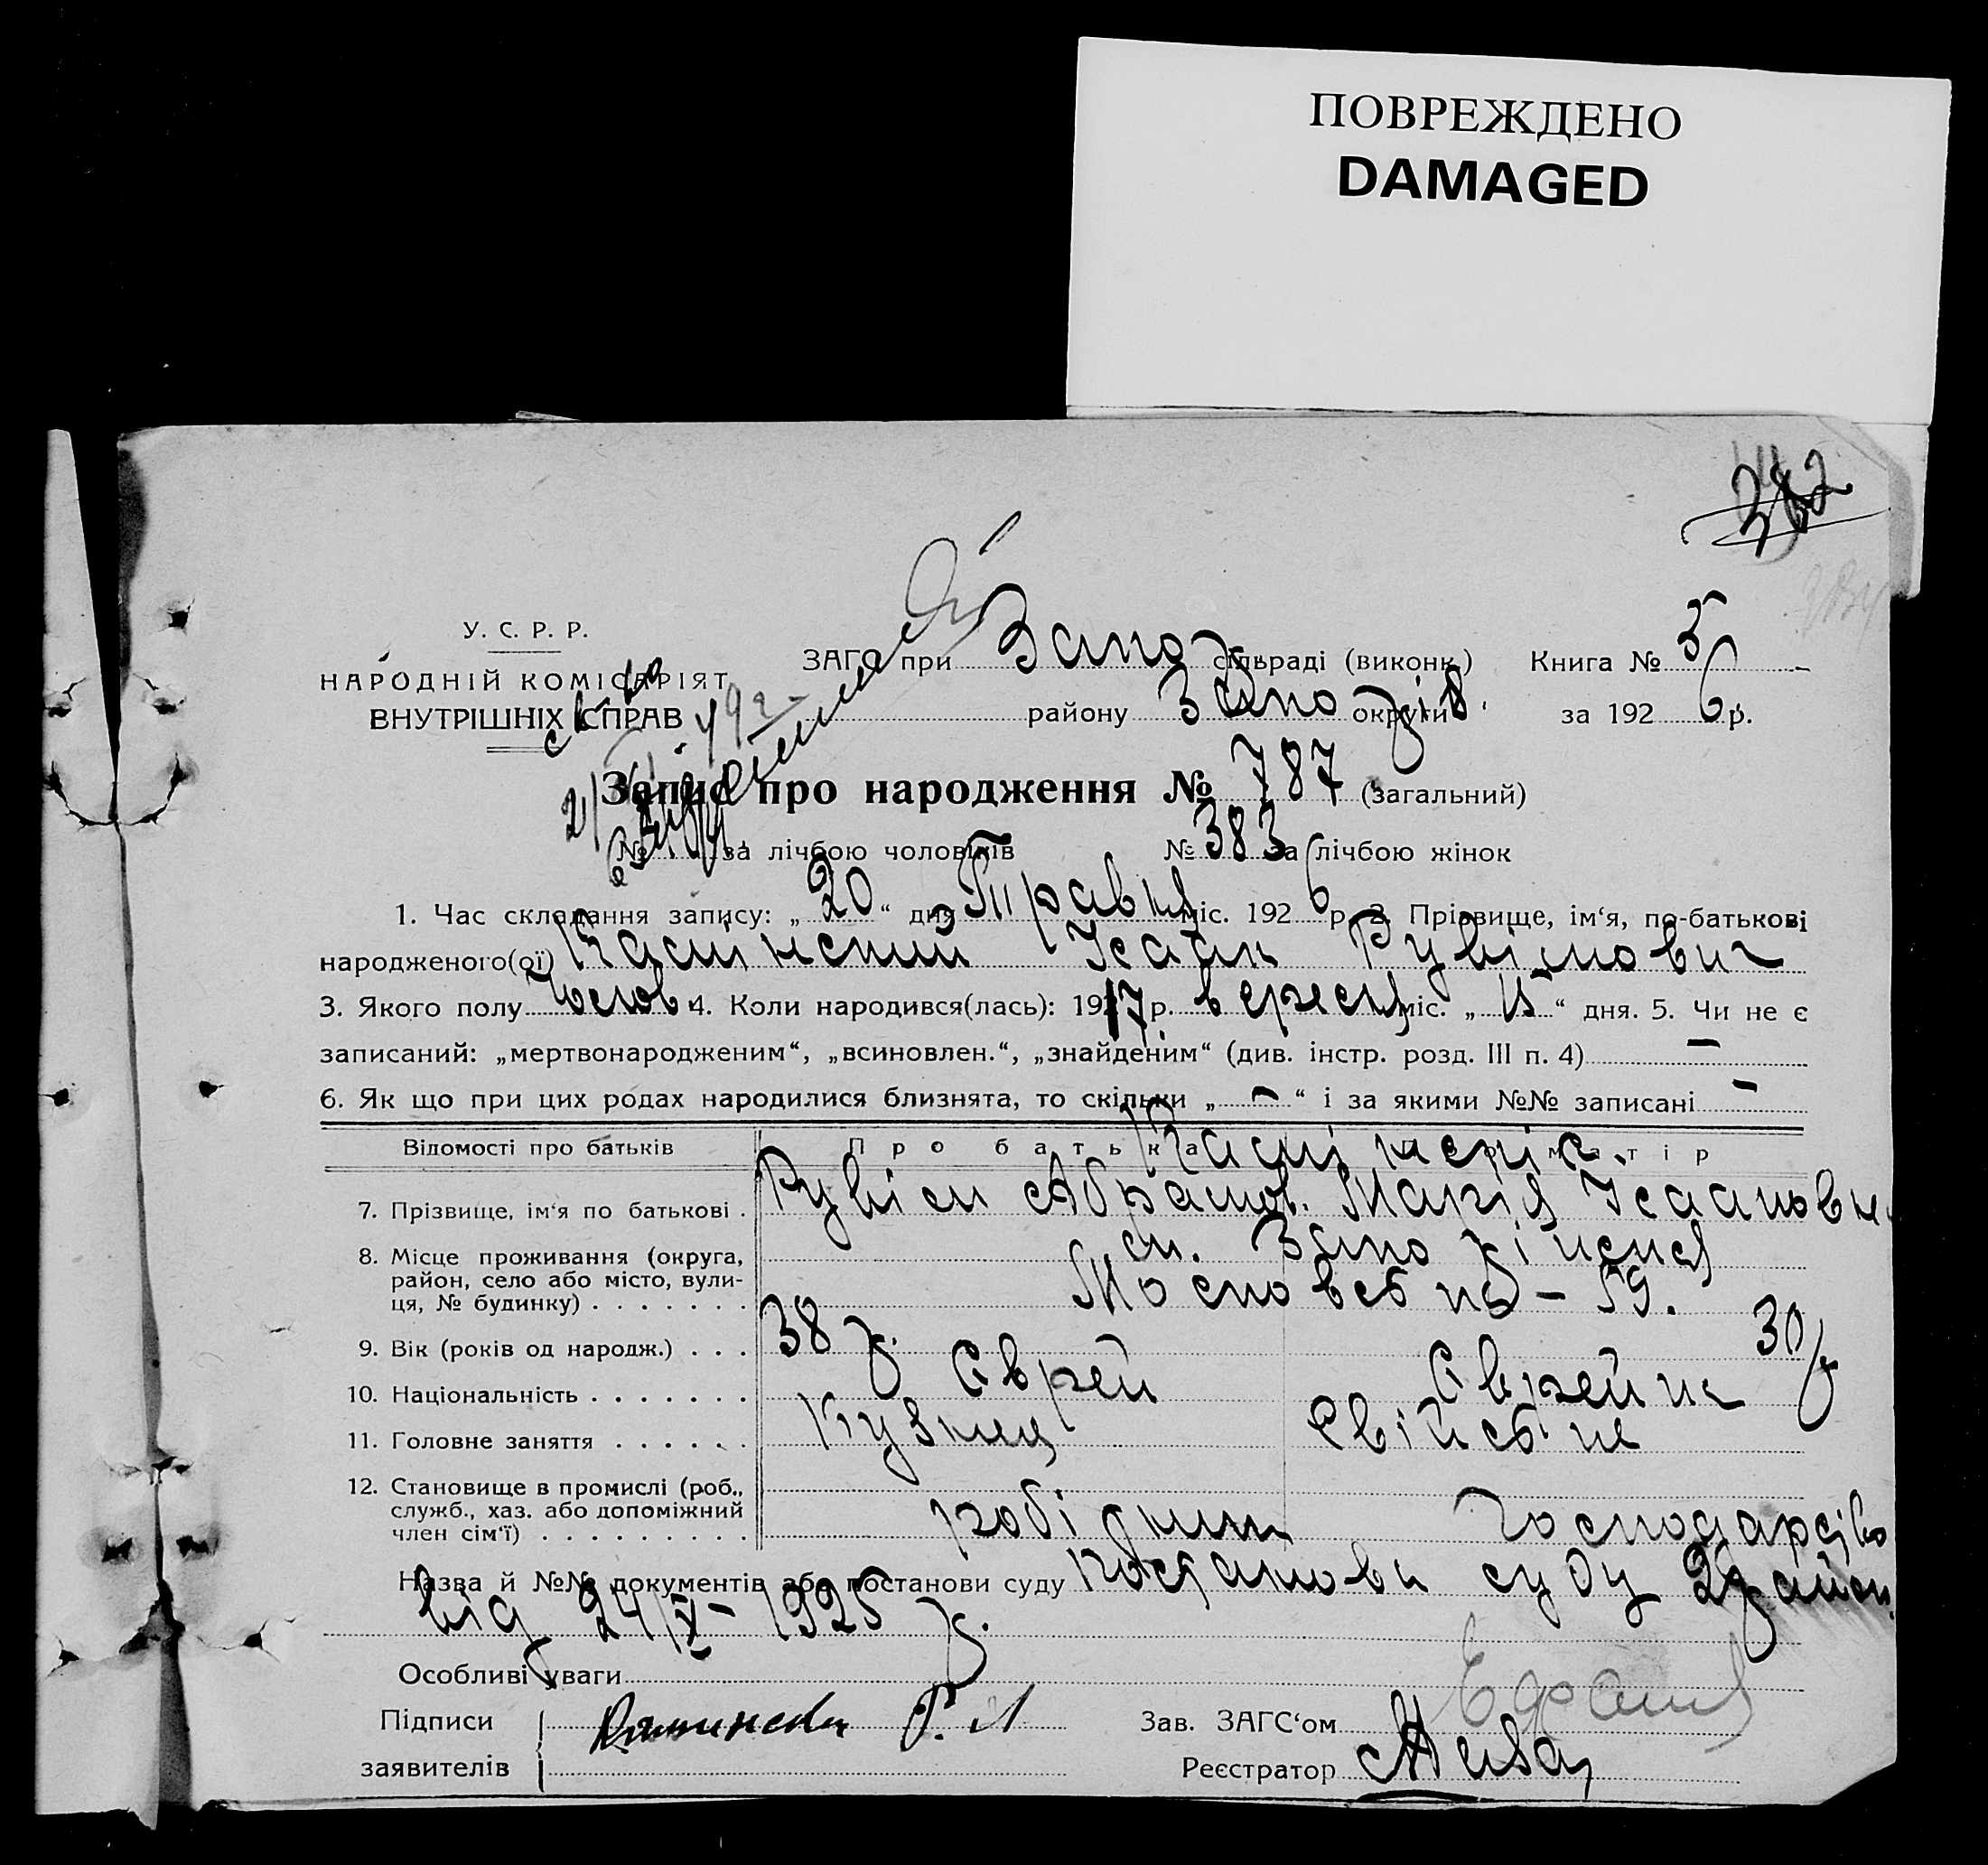 ПОВРЕЖДЕНО
DAMAGED
382
У. С. Р. Р.
НАРОДНІЙ КОМІСАРІЯТ
ВНУТРІШНІХ СПРАВ
ЗАГС при Запоз. сільраді (виконк.) Книга № 5
району Запоріз. округи за 1926 р.
Запис про народження № 787 (загальний)
№ за лічбою чоловіків № 383 за лічбою жінок
1. Час складання запису: „ 20 “ дня Травня міс. 1926 р. 2. Прізвище, ім‘я, по-батькові
народженого(ої) Камінский Ісаак Рувімович
3. Якого полу Чолов. 4. Коли народився(лась): 1917 р. вересня міс. „ 15 “ дня. 5. Чи не є
записаний: „мертвонародженим“, „всиновлен.“, „знайденім“ (див. інстр. розд. III п. 4) —
6. Як що при цих родах народилися близнята, то скільки „ — “ і за якими №№ записані —
Відомості про батьків Про батька матір
Камінскі
7. Прізвище, ім‘я по батькові . Рувім Абрамов. Марія Ісааковн
8. Місце проживання (округа, район, село або місто, вулиця, № будинку) . . . . . . . м. Запоріжжя
Московськ - 59.
9. Вік (років од народж.) . . . 38 р. 30 р
10. Національність . . . . . . . Єврей Єврейка
11. Головне заняття . . . . . . Кузнец Свійське
12. Становище в промислі (роб., служб., хаз. або допоміжний член сім‘ї) . . . . . . . . . робітник господарство
Назва й №№ документів або постанови суду постанова суду 2 район.
від 24/V - 1925 р.
Особливі уваги
Підписи Каминский Р. А
заявителів
Зав. ЗАГС‘ом
Реєстратор